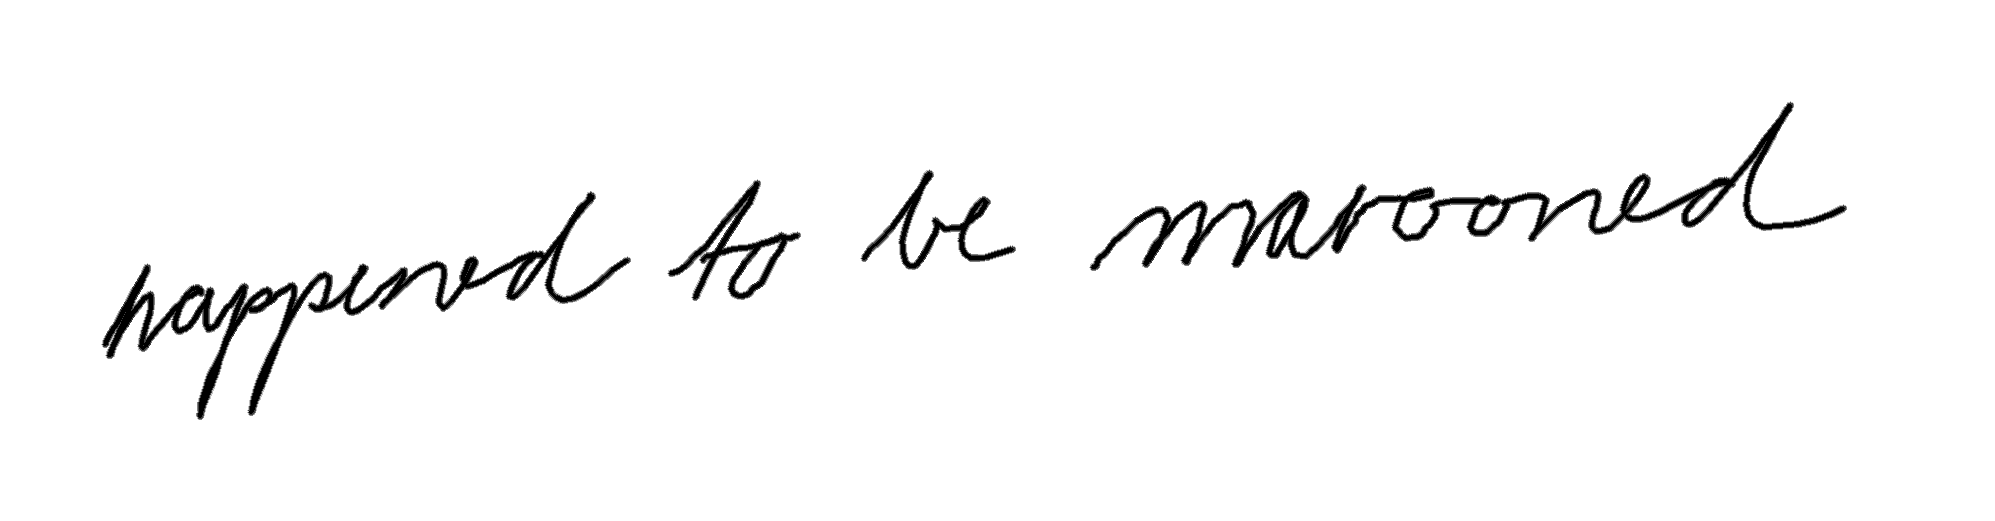 happened to be marooned